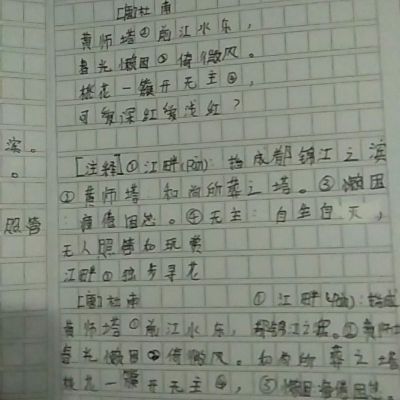 [唐]杜甫
黄师塔②前江水东，
春光懒困③倚微风。
桃花一簇开无主④，
可爱深红爱浅红？
滨。
。
[注释]①江畔(Pàn)：指成都锦江之滨
②黄师塔 和尚所葬之塔。③懒困
：疲倦困怠。④无主：自生自灭，
照管
无人照管和玩赏
江畔①独步寻花
[唐]杜甫 ①江畔(Pàn)：指成
黄师塔②前江水东，都锦江之滨。②黄师塔
春光懒困③倚微风。和尚所葬之塔
桃花一簇开无主④，③懒困疲倦困怠。